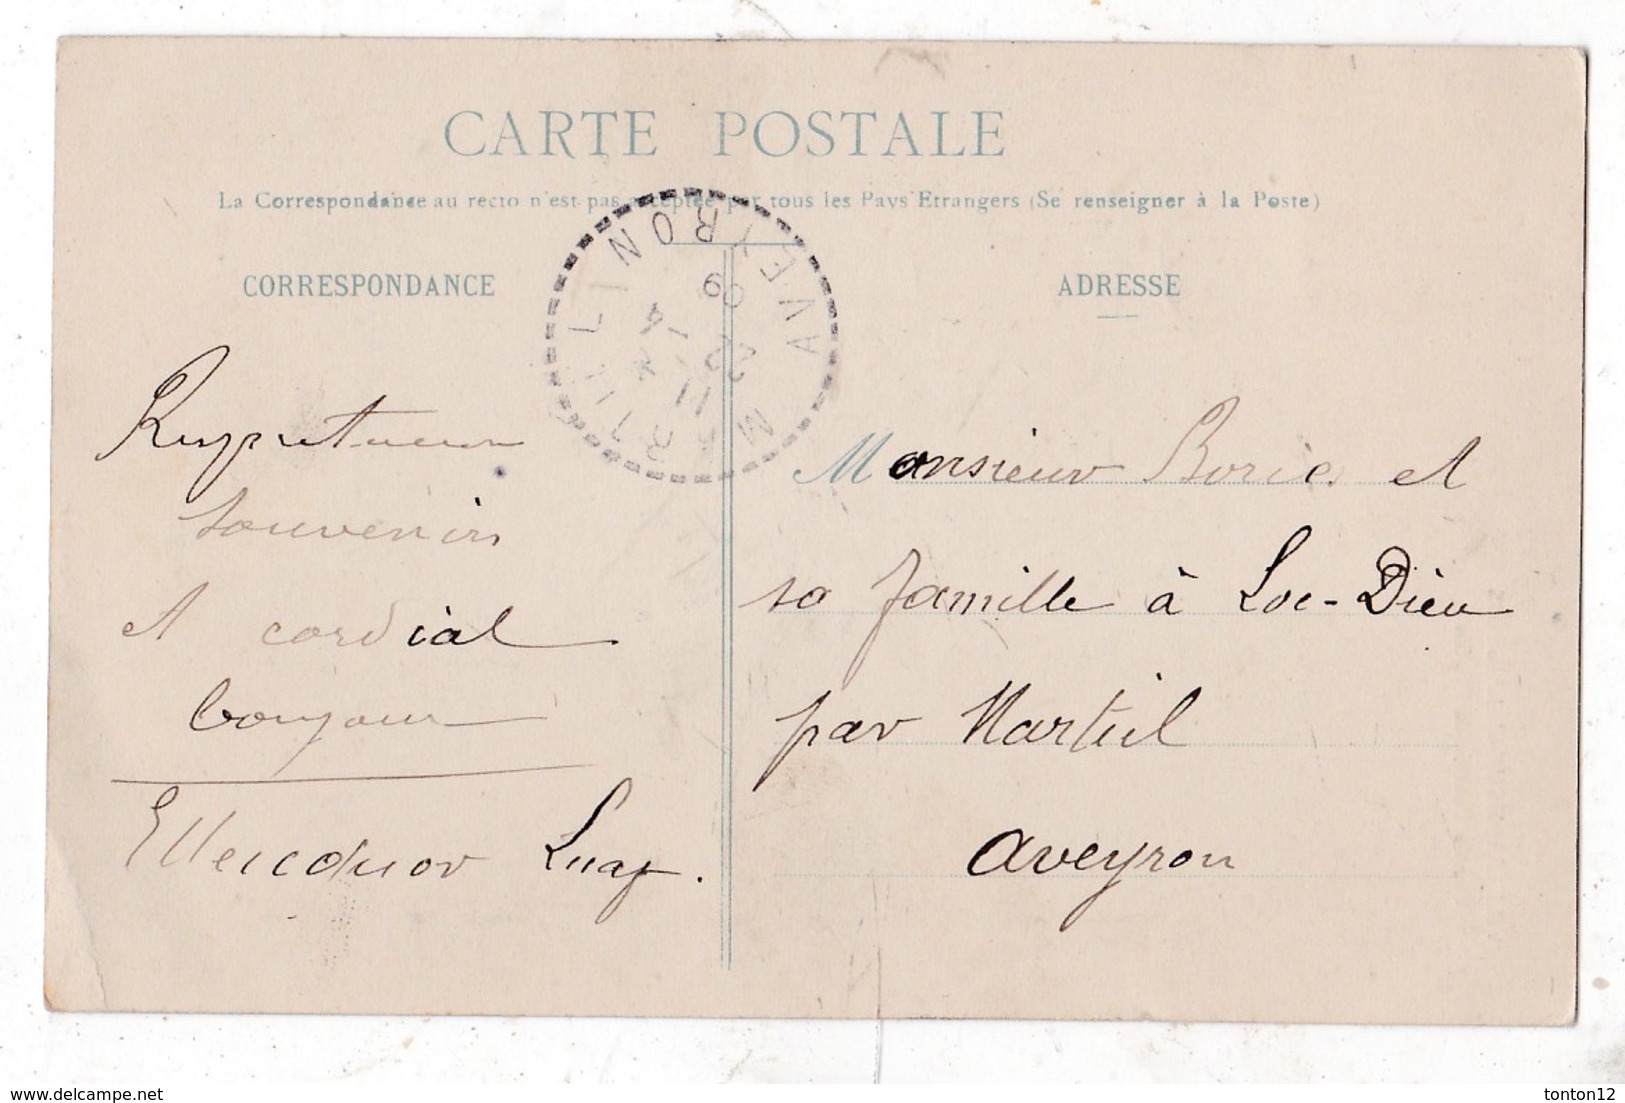 CARTE POSTALE
La Correspondance au recto n'est pas acceptée par tous les Pays Etrangers (Se renseigner à la Poste)
CORRESPONDANCE
Respectueux
souvenirs
et cordial
bonjour
MARTILLIN AVEYRON
22 -4
09
ADRESSE
Monsieur Borie et
sa famille à Loc-Dieu
par Martiel
Aveyron
delcampe.net
tonton12